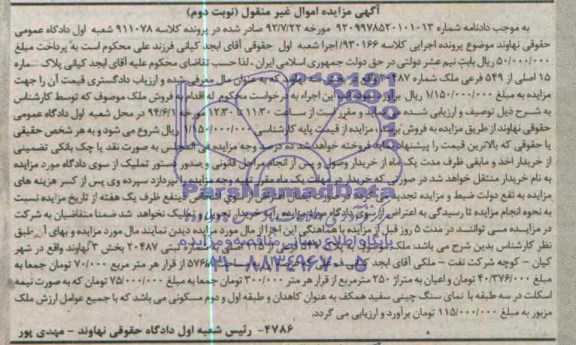 آگهی مزایده اموال غیر منقول (نوبت دوم)
به موجب دادنامه شماره ۹۲۰۹۹۷۸۵۲۰۱۰۱۰۱۳ مورخه ۹۲/۷/۲۲ صادر شده در پرونده کلاسه ۹۱۱۰۷۸ شعبه اول دادگاه عمومی
حقوقی نهاوند موضوع پرونده اجرایی کلاسه ۹۳۰۱۶۶/اجرا شعبه اول حقوقی آقای ابجد کیانی فرزند علی محکوم است به پرداخت مبلغ
۵۰/۰۰۰/۰۰۰ ریال بابت نیم عشر دولتی در حق دولت جمهوری اسلامی ایران، لذا حسب تقاضای محکوم علیه آقای ابجد کیانی پلاک
۱۵ اصلی از ۵۴۹ فرعی ملک شماره که به عنوان مال معرفی شده و ارزیاب دادگستری قیمت آن را جهت
مزایده به مبلغ ۱/۱۵۰/۰۰۰/۰۰۰ ریال برآورد این اجراء به درخواست محکوم له اقدام به فروش ملک موصوف که توسط کارشناس
به شرح ذیل توصیف و ارزیابی شده و مقرر است از ساعت ۱۱:۳۰ تا ۱۲:۳۰ مورخه ۹۴/۶/۱ در محل شعبه اول دادگاه عمومی
حقوقی نهاوند از طریق مزایده به فروش برسد، مزایده از قیمت پایه کارشناسی ۱/۱۵۰/۰۰۰/۰۰۰ ریال شروع می شود و به هر شخص حقیقی
یا حقوقی که بالاترین قیمت را پیشنهاد فروخته خواهد شد وجه مزایده فی المجلس به صورت نقد یا چک بانکی تضمینی
از خریدار اخذ و مابقی ظرف مدت یک ماه از خریدار وصول و پس از انجام مراحل قانونی و صدور دستور تملیک از سوی دادگاه مورد مزایده
به نام خریدار منتقل خواهد شد در صورتی که خریدار در مهلت یک ماه مقرر بقیه وجه مزایده را نپردازد سپرده وی پس از کسر هزینه های
مزایده به نفع دولت ضبط و مزایده تجدید ظرف یک هفته از تاریخ مزایده نسبت
به نحوه انجام مزایده تا رسیدگی به اعتراض از سوی دادگاه خریدار تحویل و تملیک نخواهد شد ضمنا متقاضیان به شرکت
در مزایده می توانند در مدت ۵ روز قبل از مزایده با هماهنگی این اجرا از مال مورد مزایده دیدن نمایند مال مورد مزایده و بهای آن طبق
نظر کارشناس بدین شرح می باشد: ملک ۲۰۴۸۷ بخش ۳ نهاوند واقع در شهر
کیان - کوچه شرکت نفت - ملکی آقای ابجد از قرار هر متر مربع ۷۰/۰۰۰ تومان جمعا به
مبلغ ۴۰/۳۷۶/۰۰۰ تومان و اعیان به متراژ ۲۵۰ مترمربع از قرار هر متر ۳۰۰/۰۰۰ تومان جمعا به مبلغ ۷۵/۰۰۰/۰۰۰ تومان که به صورت نیمه
اسکلت در سه طبقه با نمای سنگ چینی سفید همکف به عنوان کاهدان و طبقه اول و دوم مسکونی می باشد که با جمیع عوامل ارزش ملک
مزبور به مبلغ ۱۱۵/۰۰۰/۰۰۰ تومان برآورد و ارزیابی می گردد.
۴۷۸۶- رئیس شعبه اول دادگاه حقوقی نهاوند - مهدی پور
ParsNamadData
پایگاه اطلاع رسانی مناقصه و مزایده
۰۲۱-۸۸۳۴۹۶۷۰-۵